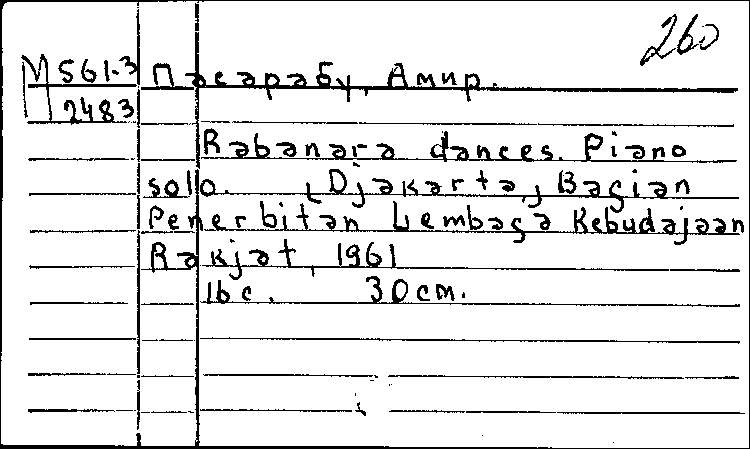 260
М 561.3
2483
Пасарабу, Амир.
Rabanara dances. Piano
solo. [Djakarta,] Bagian
Penerbitan Lembaga Kebudajaan
Rakjat, 1961
16 c. 30 cm.